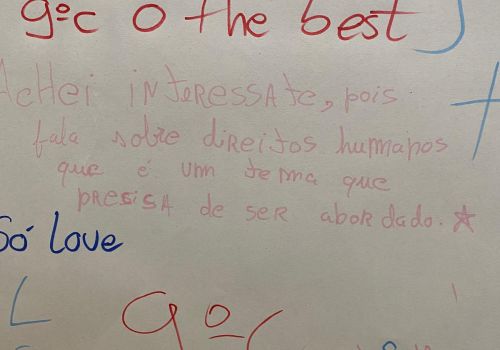 9ºc O the best
Achei interessate, pois
fala sobre direitos humanos
que é um tema que
presisa de ser abordado.
Só love
9º